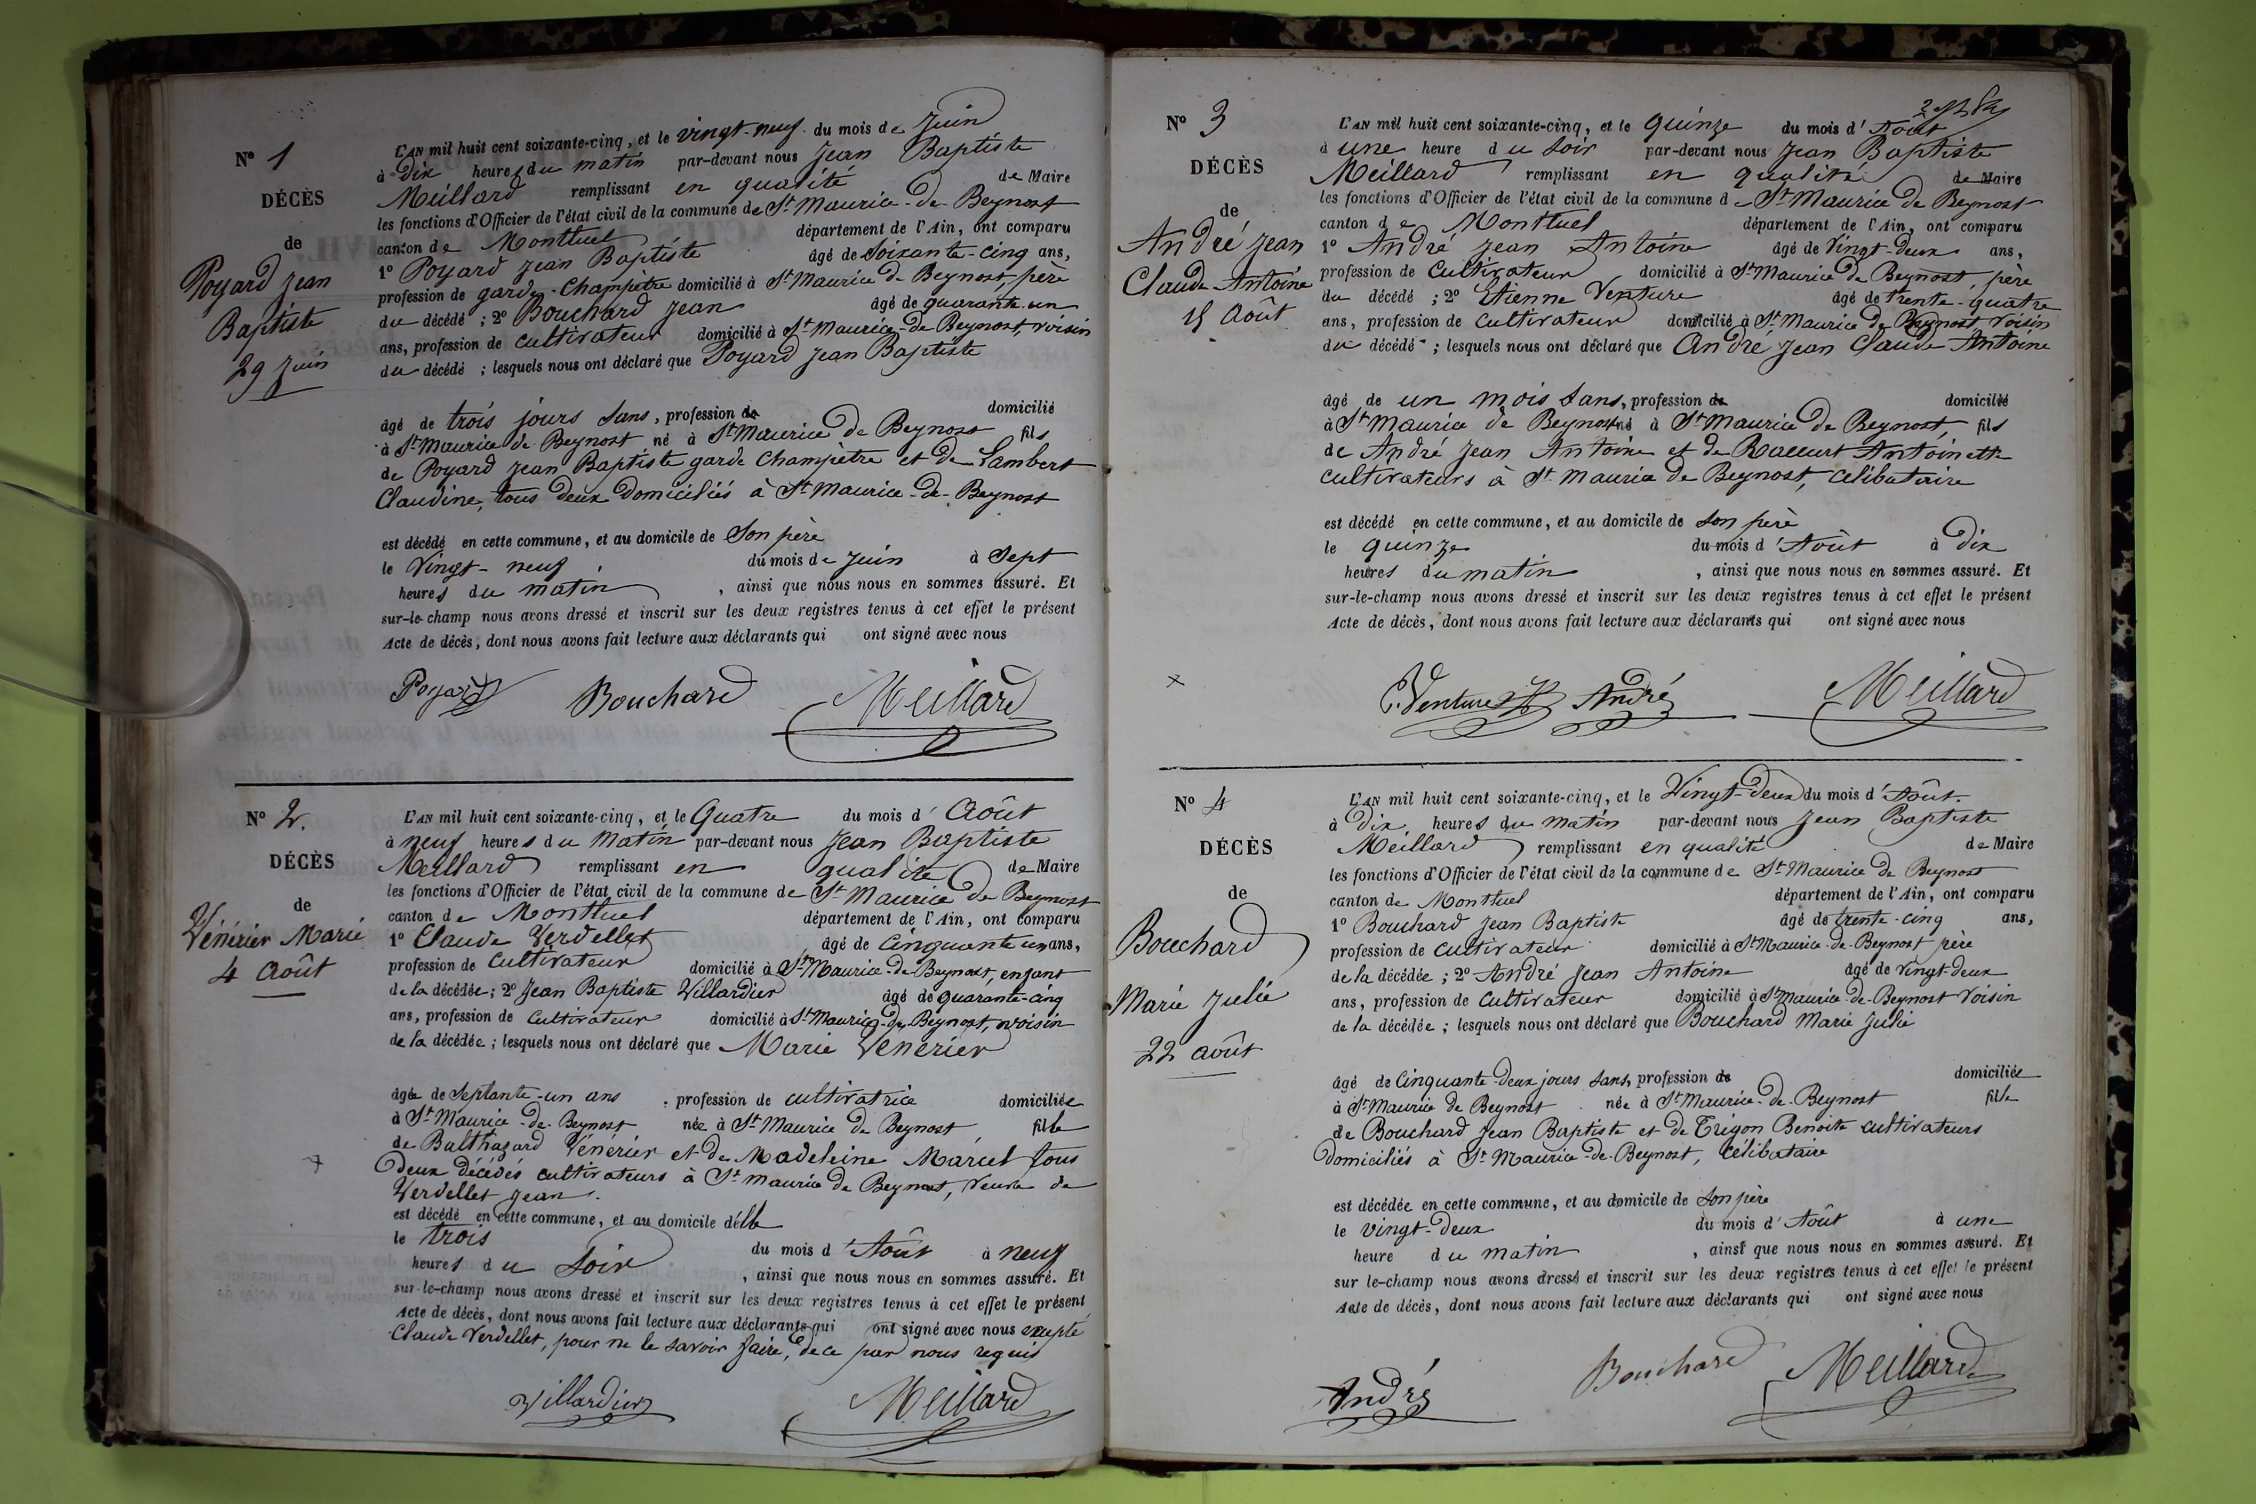 N° 1
DÉCÈS
de
Poyard Jean
Baptiste
29 Juin
L'AN mil huit cent soixante-cinq, et le vingt-neuf du mois de Juin
à Dix heures du matin par-devant nous Jean Baptiste
Meillard remplissant en qualité de Maire
les fonctions d'Officier de l'état civil de la commune de St Maurice-de-Beynost
canton de Montluel département de l'Ain, ont comparu
1° Poyard Jean Baptiste âgé de Soixante-cinq ans,
profession de garde-Champêtre domicilié à St Maurice de Beynost, père
du décédé ; 2° Bouchard Jean âgé de quarante-un
ans, profession de cultivateur domicilié à St Maurice-de-Beynost, voisin
du décédé ; lesquels nous ont déclaré que Poyard Jean Baptiste
âgé de trois jours Sans, profession de domicilié
à St Maurice de Beynost né à St Maurice de Beynost fils
de Poyard Jean Baptiste garde Champetre et de Lambert
Claudine, tous deux domiciliés à St Maurice-de-Beynost
est décédé en cette commune, et au domicile de Son père
le Vingt-neuf du mois de Juin à Sept
heures du matin, ainsi que nous nous en sommes assuré. Et
sur-le-champ nous avons dressé et inscrit sur les deux registres tenus à cet effet le présent
Acte de décès, dont nous avons fait lecture aux déclarants qui ont signé avec nous
Poyard Bouchard Meillard
N° 2.
DÉCÈS
de
Vénérier Marie
4 Août
L'AN mil huit cent soixante-cinq, et le Quatre du mois d' Août
à neuf heures du Matin par-devant nous Jean Baptiste
Meillard remplissant en qualité de Maire
les fonctions d'Officier de l'état civil de la commune de St Maurice de Beynost
canton de Montluel département de l'Ain, ont comparu
1° Claude Verdellet âgé de Cinquante un ans,
profession de Cultivateur domicilié à St Maurice-de-Beynost, enfant
de la décédée ; 2° Jean Baptiste Villardier âgé de quarante-cinq
ans, profession de Cultivateur domicilié à St Maurice-de-Beynost, voisin
de la décédée ; lesquels nous ont déclaré que Marie Venerier
âgée de Septante-un ans, profession de cultivatrice domiciliée
à St Maurice-de-Beynost née à St Maurice de Beynost fille
de Balthazard Vénérier et de Madeleine Marcel tous
deux décédés cultivateurs à St maurice de Beynost, veuve de
Verdellet Jean.
est décédé en cette commune, et au domicile d'elle
le trois du mois d' Août à neuf
heures du Soir, ainsi que nous nous en sommes assuré. Et
sur-le-champ nous avons dressé et inscrit sur les deux registres tenus à cet effet le présent
Acte de décès, dont nous avons fait lecture aux déclarants qui ont signé avec nous excepté
Claude Verdellet, pour ne le savoir faire, de ce par nous requis
Villardier Meillard
N° 3
DÉCÈS
de
André Jean
Claude Antoine
15 Août
L'AN mil huit cent soixante-cinq, et le quinze du mois d' Août
à une heure du Soir par-devant nous Jean Baptiste
Meillard remplissant en qualité de Maire
les fonctions d'Officier de l'état civil de la commune de St Maurice de Beynost
canton de Montluel département de l'Ain, ont comparu
1° André Jean Antoine âgé de Vingt-deux ans,
profession de Cultivateur domicilié à St Maurice de Beynost, père
du décédé ; 2° Etienne Venture âgé de trente-quatre
ans, profession de Cultivateur domicilié à St Maurice de Beynost voisin
du décédé ; lesquels nous ont déclaré que André Jean Claude Antoine
âgé de un mois Sans, profession de domicilié
à St Maurice de Beynost né à St Maurice de Beynost, fils
de André Jean Antoine et de Raccurt Antoinette
cultivateurs à St Maurice de Beynost, Célibataire
est décédé en cette commune, et au domicile de Son père
le quinze du mois d' Août à Dix
heures du matin, ainsi que nous nous en sommes assuré. Et
sur-le-champ nous avons dressé et inscrit sur les deux registres tenus à cet effet le présent
Acte de décès, dont nous avons fait lecture aux déclarants qui ont signé avec nous
E. Venture André Meillard
N° 4
DÉCÈS
de
Bouchard
Marie Julie
22 Août
L'AN mil huit cent soixante-cinq, et le Vingt-deux du mois d' Août.
à Dix heures du matin par-devant nous Jean Baptiste
Meillard remplissant en qualité de Maire
les fonctions d'Officier de l'état civil de la commune de St Maurice de Beynost
canton de Montluel département de l'Ain, ont comparu
1° Bouchard Jean Baptiste âgé de trente-cinq ans,
profession de Cultivateur domicilié à St Maurice-de-Beynost père
de la décédée ; 2° André Jean Antoine âgé de vingt-deux
ans, profession de Cultivateur domicilié à St Maurice-de-Beynost Voisin
de la décédée ; lesquels nous ont déclaré que Bouchard Marie Julie
âgé de Cinquante-deux jours Sans, profession de domiciliée
à St Maurice de Beynost née à St Maurice-de-Beynost fille
de Bouchard Jean Baptiste et de Trigon Benoite cultivateurs
Domiciliés à St Maurice-de-Beynost, Célibataire
est décédée en cette commune, et au domicile de Son père
le vingt-deux du mois d' Août à une
heure du matin, ainsi que nous nous en sommes assuré. Et
sur le-champ nous avons dressé et inscrit sur les deux registres tenus à cet effet le présent
Acte de décès, dont nous avons fait lecture aux déclarants qui ont signé avec nous
André Bouchard Meillard